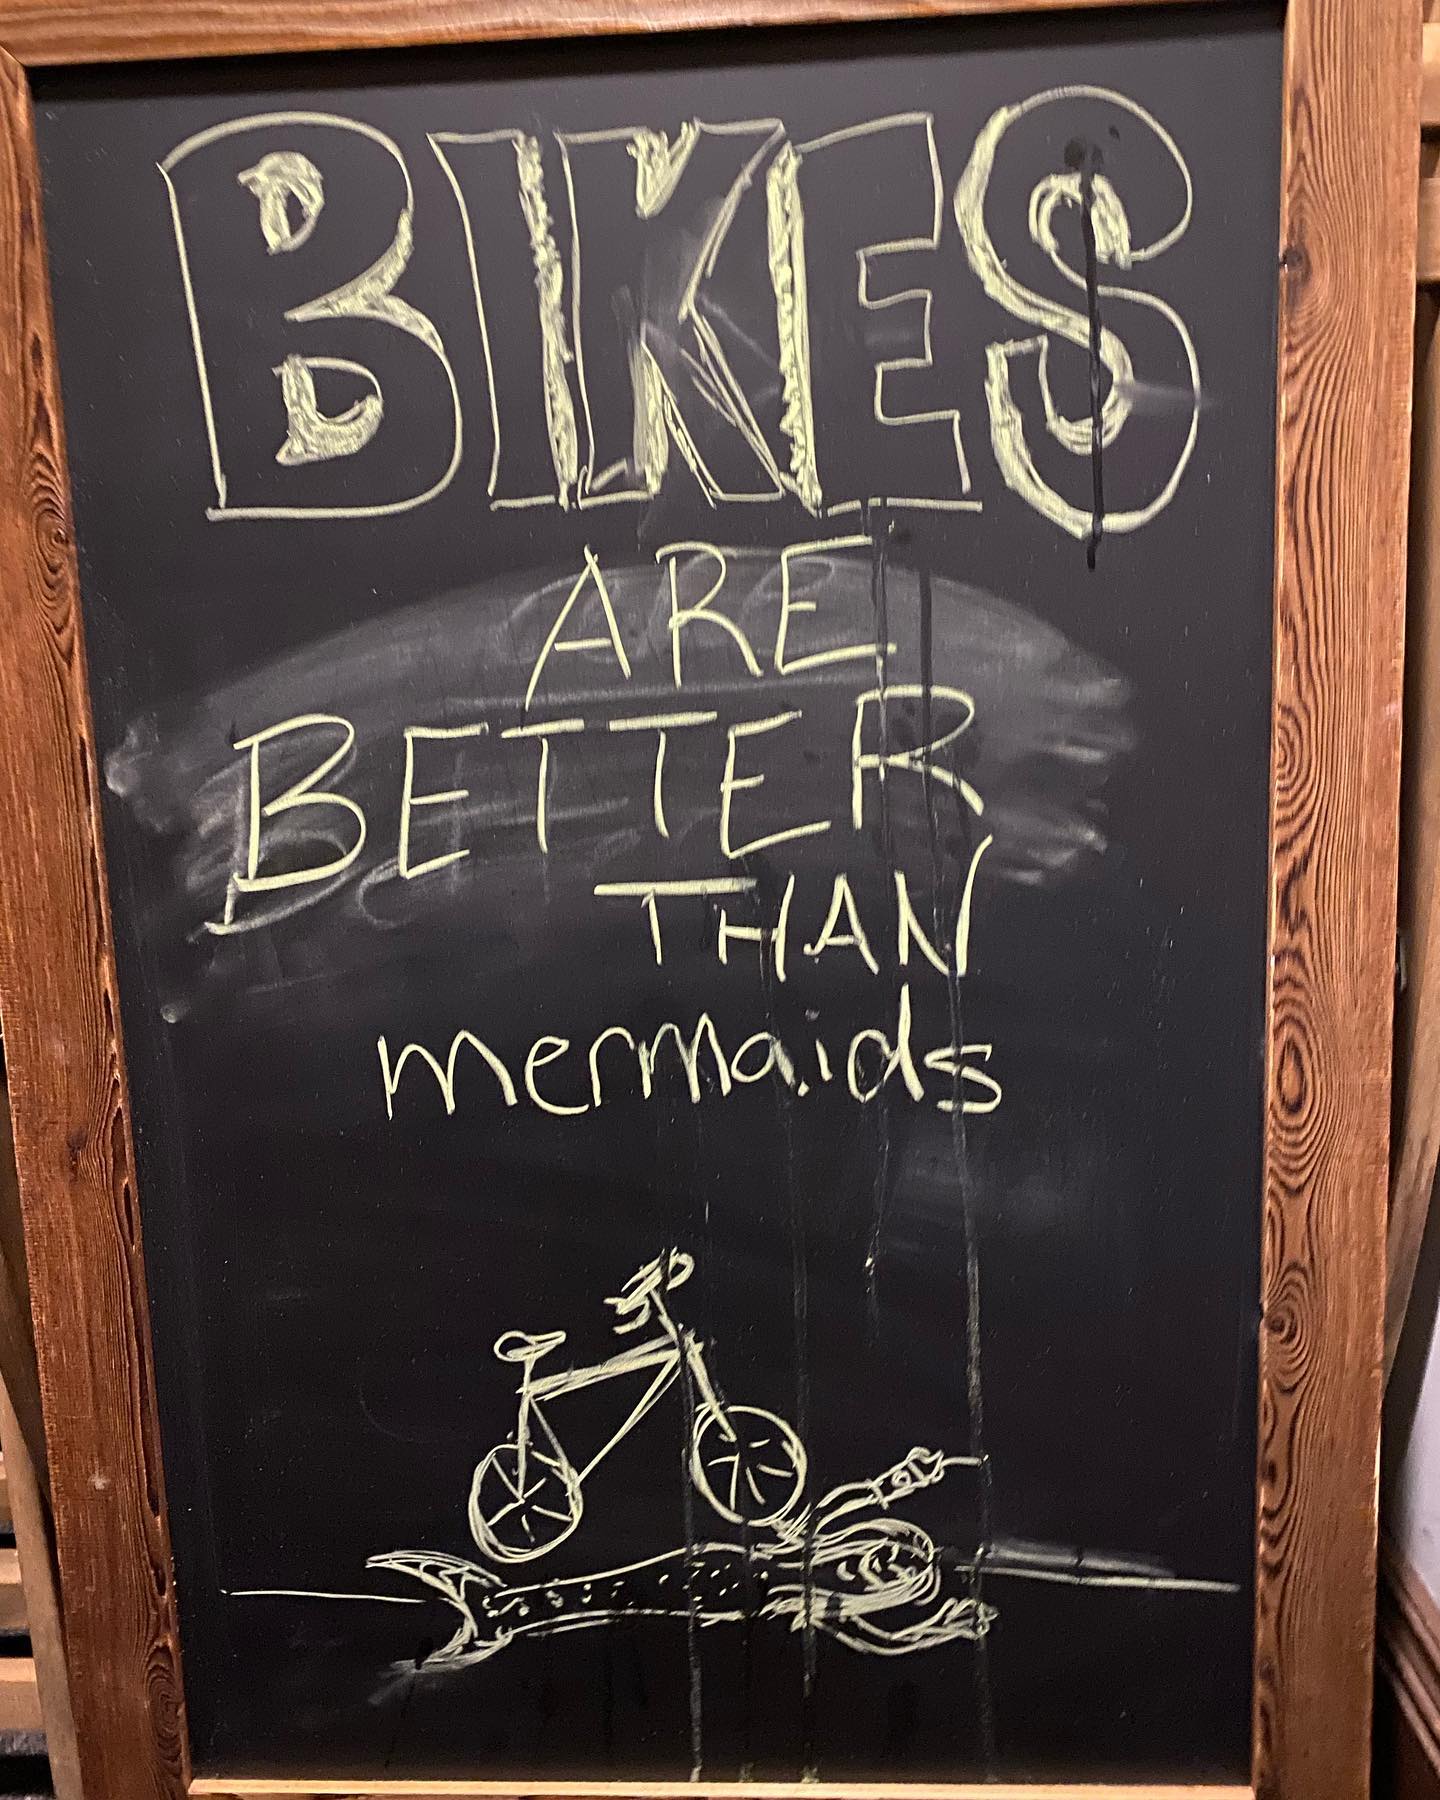 BIKES
ARE
BETTER
THAN
mermaids